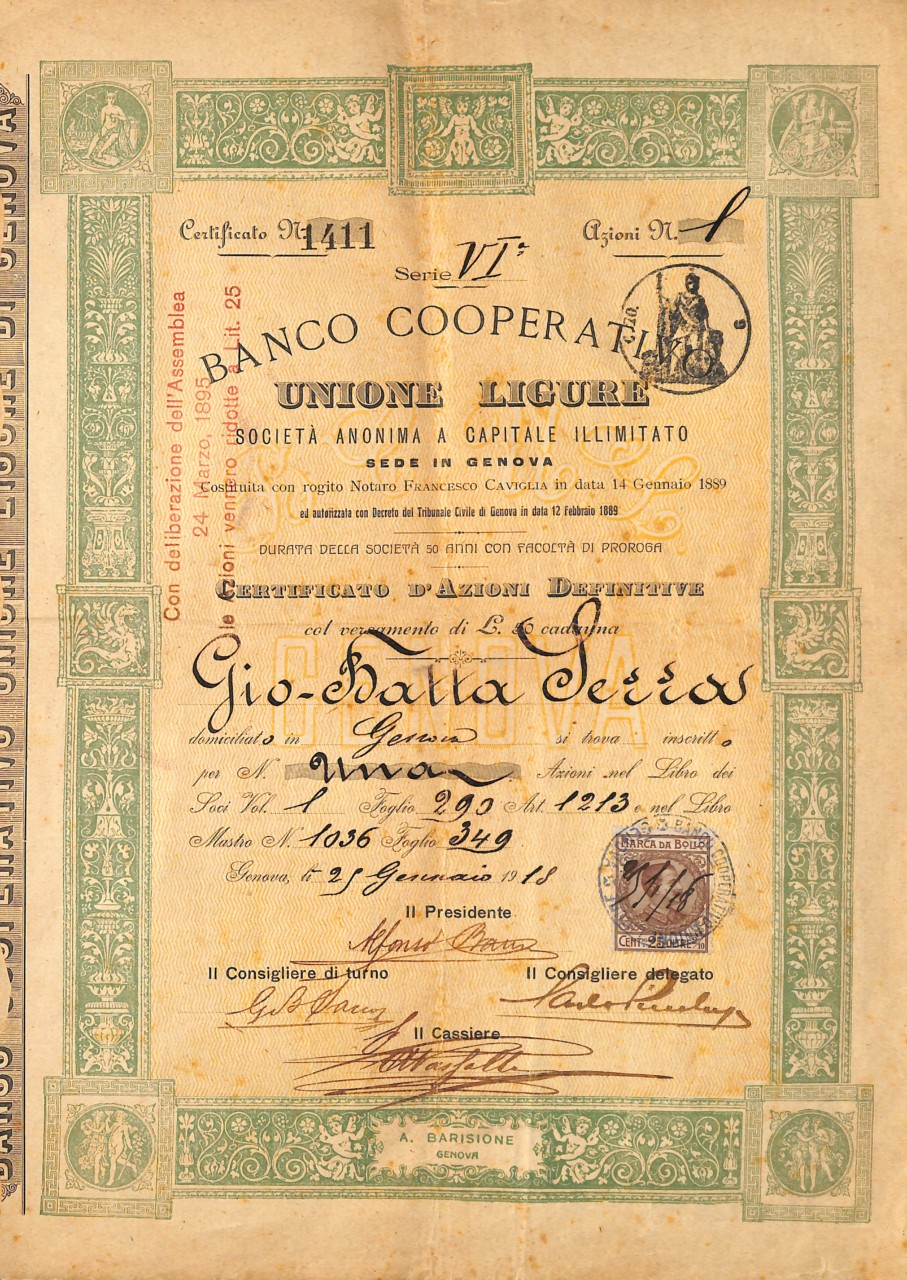 Certificato N. 1411
Azioni N. 1
Serie VIa
BANCO COOPERATIVO
UNIONE LIGURE
SOCIETÀ ANONIMA A CAPITALE ILLIMITATO
SEDE IN GENOVA
Costituita con rogito Notaro FRANCESCO CAVIGLIA in data 14 Gennaio 1889
ed autorizzata con Decreto del Tribunale Civile di Genova in data 12 Febbraio 1889
DURATA DELLA SOCIETÀ 50 ANNI CON FACOLTÀ DI PROROGA
CERTIFICATO D'AZIONI DEFINITIVE
col versamento di L. cadauna
Gio-Batta Serra
domiciliato in Genova si trova inscritto
per N. una Azioni nel Libro dei
Soci Vol. 1 Foglio 290 Art. 1213 e nel Libro
Mastro N. 1036 Foglio 349
Genova, li 25 Gennaio 1918
Il Presidente
Alfonso
Il Consigliere di turno
Il Consigliere delegato
Il Cassiere
Con deliberazione dell'Assemblea
24 Marzo, 1895
le Azioni vennero ridotte a Lit. 25
GENOVA
MARCA DA BOLLO
25/1/18
CENT.
A. BARISIONE
GENOVA
BANCO COOPERATIVO UNIONE LIGURE DI GENOVA